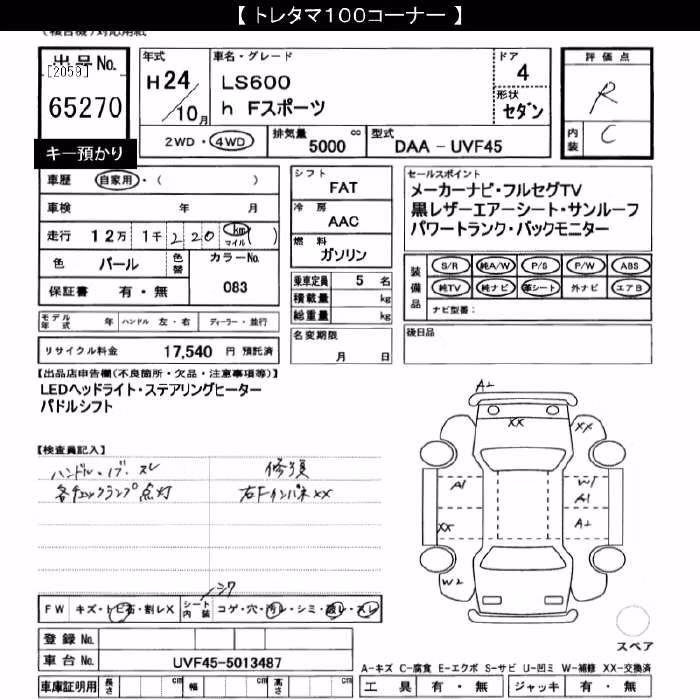 【 トレタマ１００コーナー 】
(複合機)対応用紙
出品No.
[2059]
65270
キー預かり
年式
H24/10月
車名・グレード
LS600
h Fスポーツ
ドア
4
形状
セダン
評価点
R
内装
C
2WD・4WD
排気量
5000
cc
型式
DAA - UVF45
車歴 自家用・( )
車検 年 月
走行 12万 1千 2 2 0 km マイル ( )
色 パール 色替
カラーNo.
083
保証書 有・無
モデル年式 年 ハンドル 左・右 ディーラー・並行
リサイクル料金 17,540 円 預託済
シフト
FAT
冷房
AAC
燃料
ガソリン
乗車定員 5 名
積載量 kg
総重量 kg
名変期限
月 日
セールスポイント
メーカーナビ・フルセグTV
黒レザーエアーシート・サンルーフ
パワートランク・バックモニター
装備品
S/R 純A/W P/S P/W ABS
純TV 純ナビ 革シート 外ナビ エアB
ナビ型番：
後日品
【出品店申告欄(不良箇所・欠品・注意事項等)】
LEDヘッドライト・ステアリングヒーター
パドルシフト
【検査員記入】
ハンドル・ノブ スレ
各チェックランプ点灯
修復
右FインパネXX
A2
XX
XX
A1
W1
A1
XX
A2
W2
スペア
シワ
FW キズ・トビ石・割レX
シート内装 コゲ・穴・汚レ・シミ・破レ・スレ
登録No.
車台No. UVF45-5013487
車庫証明用 長さ cm 幅 cm 高さ cm
A-キズ C-腐食 E-エクボ S-サビ U-凹ミ W-補修 XX-交換済
工具 有・無 ジャッキ 有・無